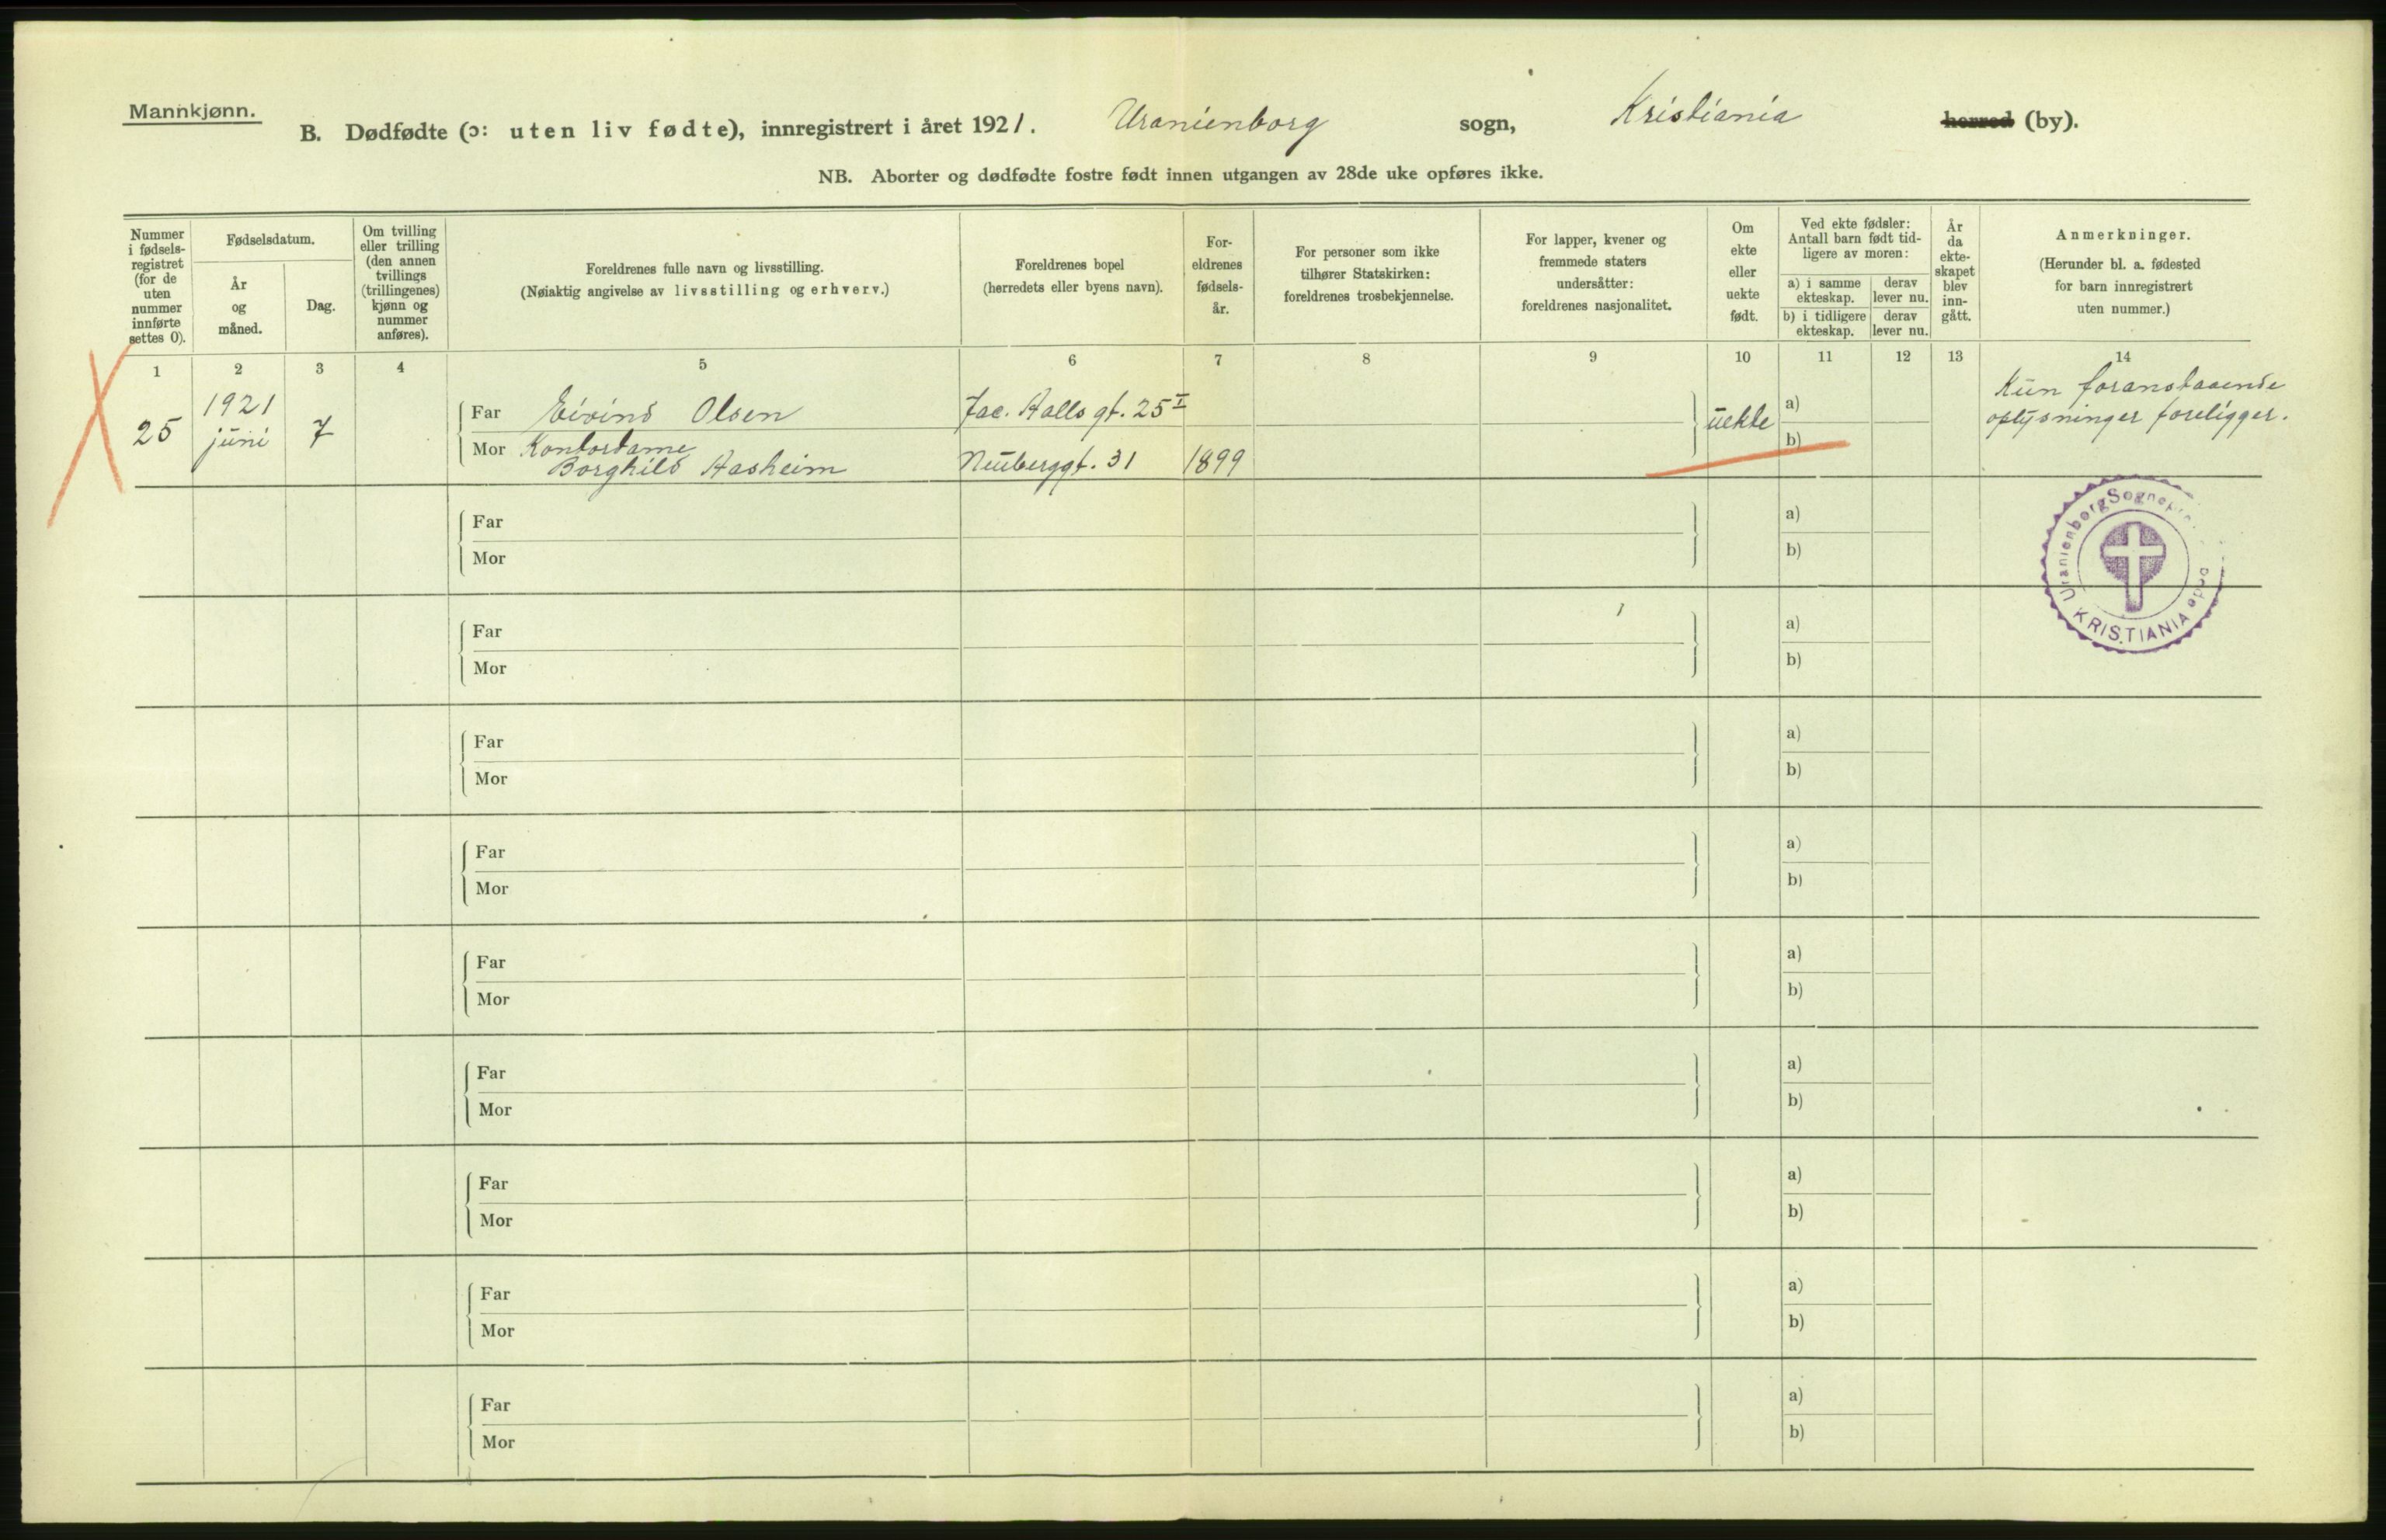 Mannkjønn.
B. Dødfødte (ɔ: uten liv fødte), innregistrert i året 1921. Uranienborg sogn, Kristiania herred (by).
NB. Aborter og dødfødte fostre født innen utgangen av 28de uke opføres ikke.
Nummer
i fødsels-
registret
(for de
uten
nummer
innførte
settes 0).
Fødselsdatum.
År
og
måned.
Dag.
Om tvilling
eller trilling
(den annen
tvillings
(trillingenes)
kjønn og
nummer
anføres).
Foreldrenes fulle navn og livsstilling.
(Nøiaktig angivelse av livsstilling og erhverv.)
Foreldrenes bopel
(herredets eller byens navn).
For-
eldrenes
fødsels-
år.
For personer som ikke
tilhører Statskirken:
foreldrenes trosbekjennelse.
For lapper, kvener og
fremmede staters
undersåtter:
foreldrenes nasjonalitet.
Om
ekte
eller
uekte
født.
Ved ekte fødsler:
Antall barn født tid-
ligere av moren:
a) i samme
ekteskap.
derav
lever nu.
b) i tidligere
ekteskap.
derav
lever nu.
År
da
ekte-
skapet
blev
inn-
gått.
Anmerkninger.
(Herunder bl. a. fødested
for barn innregistrert
uten nummer.)
1 2 3 4 5 6 7 8 9 10 11 12 13 14
25
1921
juni
7
Far Eivind Olsen
Mor Kontordame
Borghild Aasheim
Jac. Aalls gt. 25 I
Neuberggt. 31
1899
uekte
a)
b)
Kun foranstaaende
oplysninger foreligger.
Far
Mor
a)
b)
Uranienborg Sognepr
KRISTIANIA
Far
Mor
a)
b)
Far
Mor
a)
b)
Far
Mor
a)
b)
Far
Mor
a)
b)
Far
Mor
a)
b)
Far
Mor
a)
b)
Far
Mor
a)
b)
Far
Mor
a)
b)